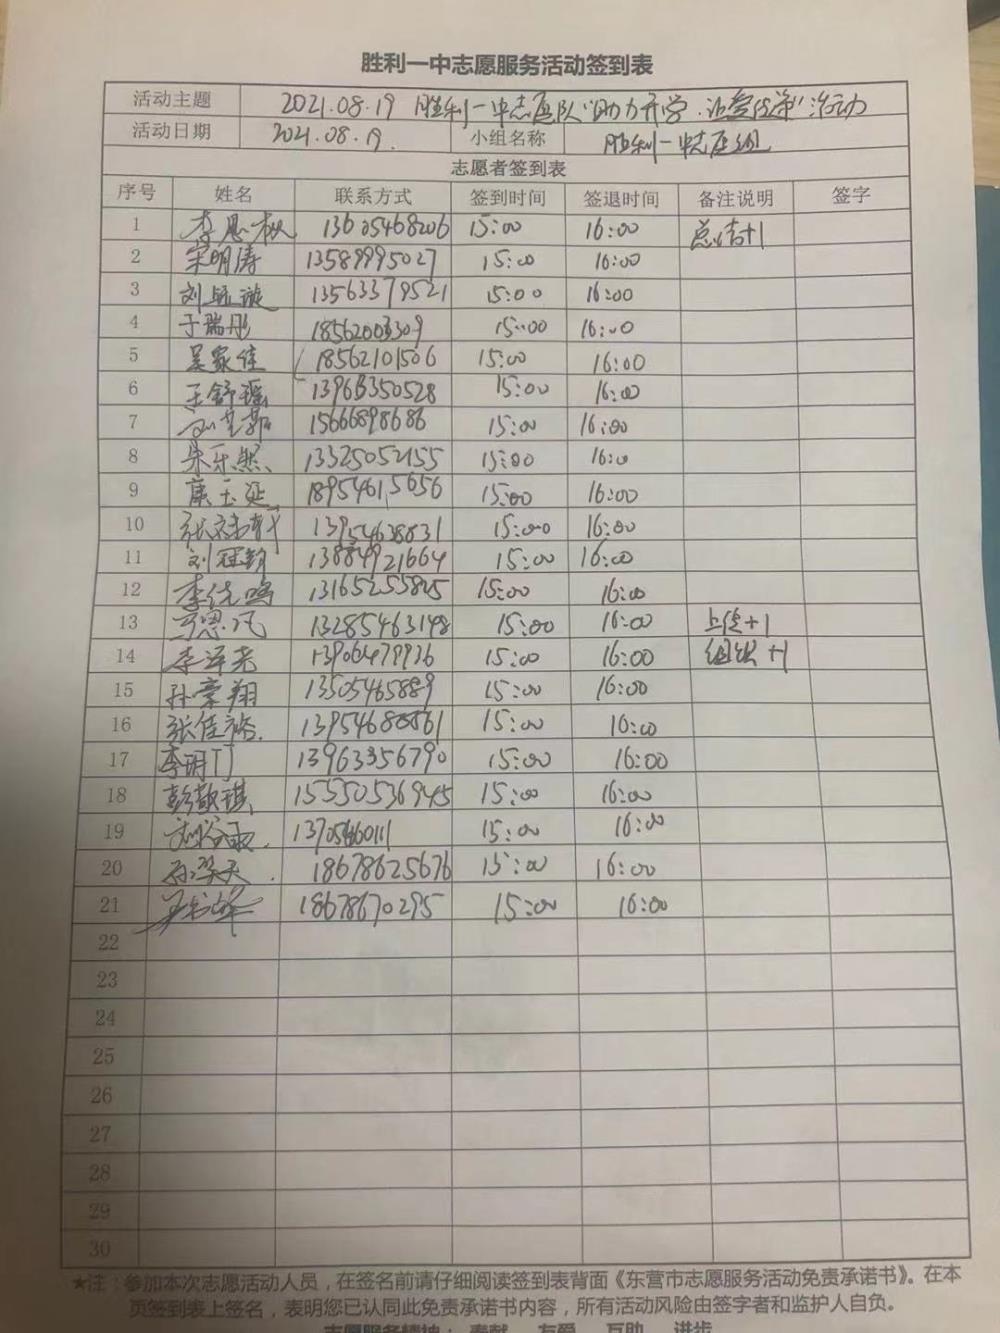 胜利一中志愿服务活动签到表
活动主题 2021.08.19 胜利一中志愿队"助力开学
活动"
活动日期 2021.08.19. 小组名称 胜利一中志愿组
志愿者签到表
序号 姓名 联系方式 签到时间 签退时间 备注说明 签字
1 13605468206 15:00 16:00 总结+1
2 宋明涛 13589995027 15:00 16:00
3 13563379521 15:00 16:00
4 于瑞彤 18562003309 15:00 16:00
5 吴家佳 18562101506 15:00 16:00
6 王舒瑶 13963350528 15:00 16:00
7 15666898686 15:00 16:00
8 朱乐然 13325052155 15:00 16:00
9 康玉延 18954615656 15:00 16:00
10 13954638831 15:00 16:00
11 刘冠钧 13884921664 15:00 16:00
12 李优鸣 15:00 16:00
13 13285463148 15:00 16:00 上传+1
14 李泽尧 15:00 16:00 组织+1
15 孙豪翔 13505465889 15:00 16:00
16 张佳裕. 15:00 16:00
17 李玥汀 13963356790 15:00 16:00
18 彭敬琪 15550536945 15:00 16:00
19 15:00 16:00
20 18678625676 15:00 16:00
21 18678670295 15:00 16:00
22
23
24
25
26
27
28
29
30
★注：参加本次志愿活动人员，在签名前请仔细阅读签到表背面《东营市志愿服务活动免责承诺书》。在本
页签到表上签名，表明您已认同此免责承诺书内容，所有活动风险由签字者和监护人自负。
志愿服务精神：奉献 友爱 互助 进步